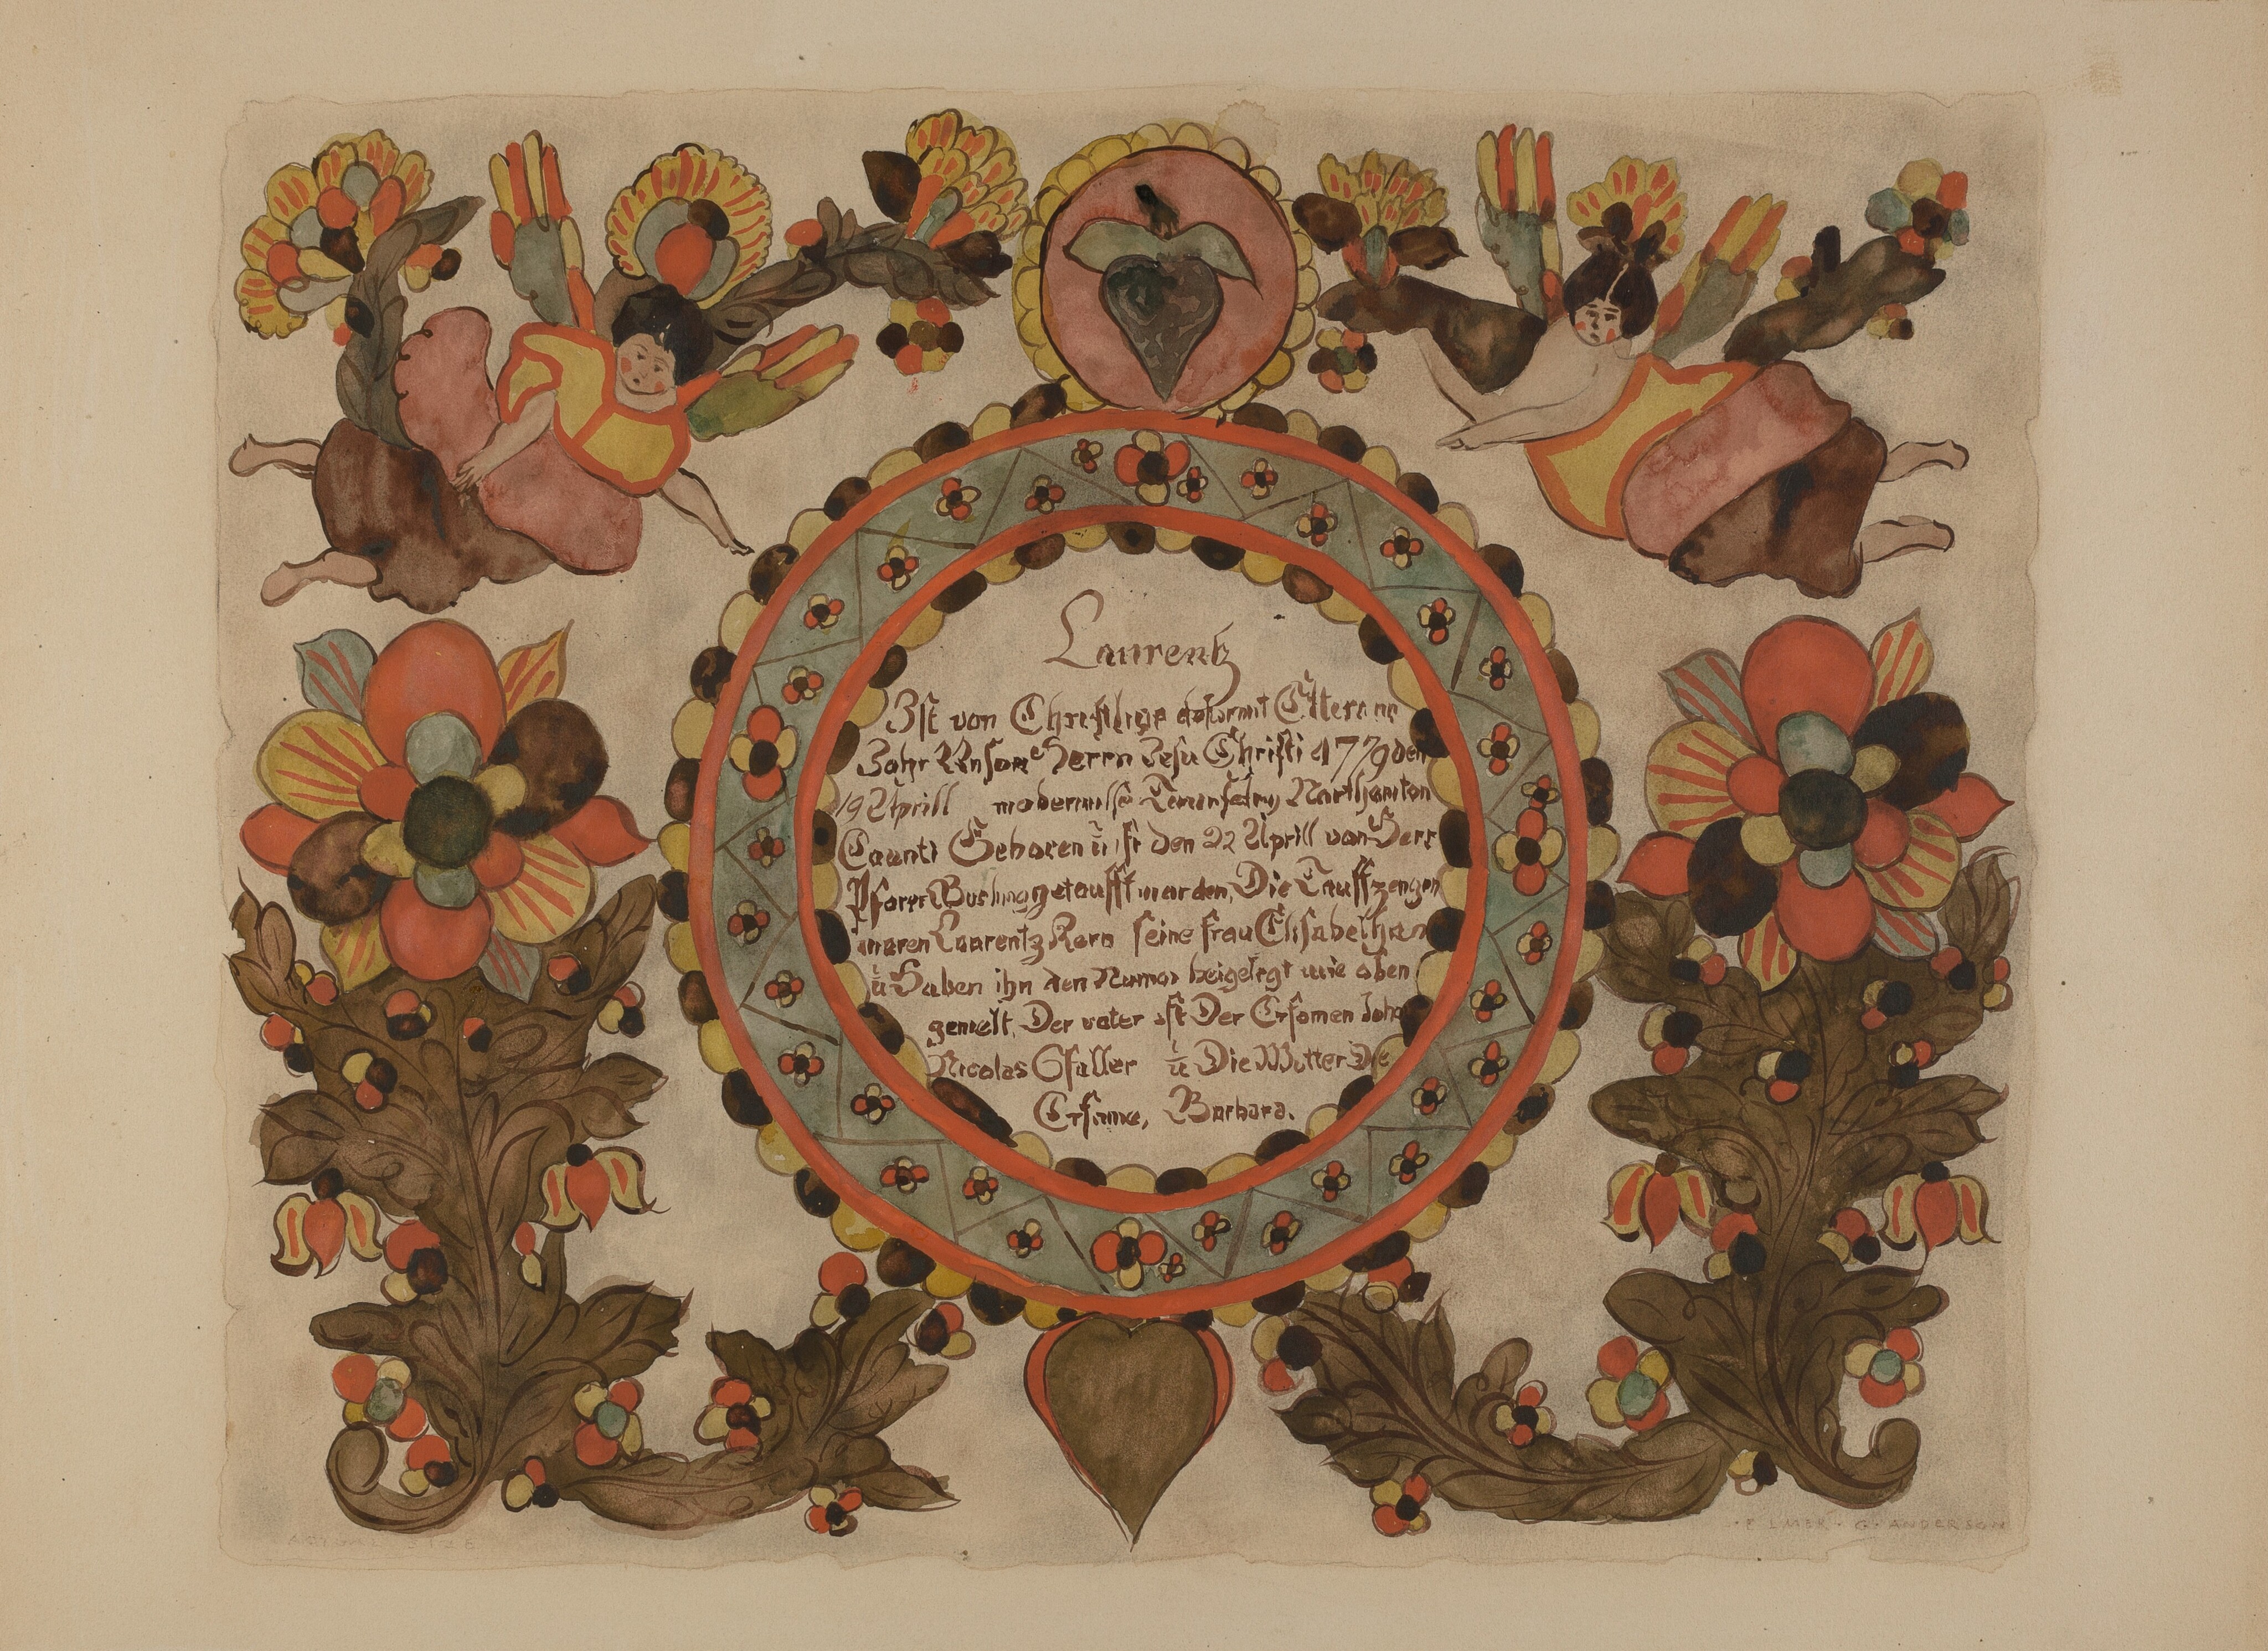 Laurentz
Ist von Christliche Eltern
Jahr Unsore Herrn Jesu Christi 1779 den
19 Aprill Northamton
Caunti Geboren ü ist den 22 Aprill von Herr
Pfarer getaufft worden, Die Tauffzeugen
waren Laurentz Korn seine frau Elisabetha
ü Haben ihn den Namen beigelegt wie oben
gemelt, Der vater ist Der Ersamen Joha
Nicolas ü Die Mutter Die
Ersame, Barbara.
ACTUAL SIZE
· ELMER · G · ANDERSON